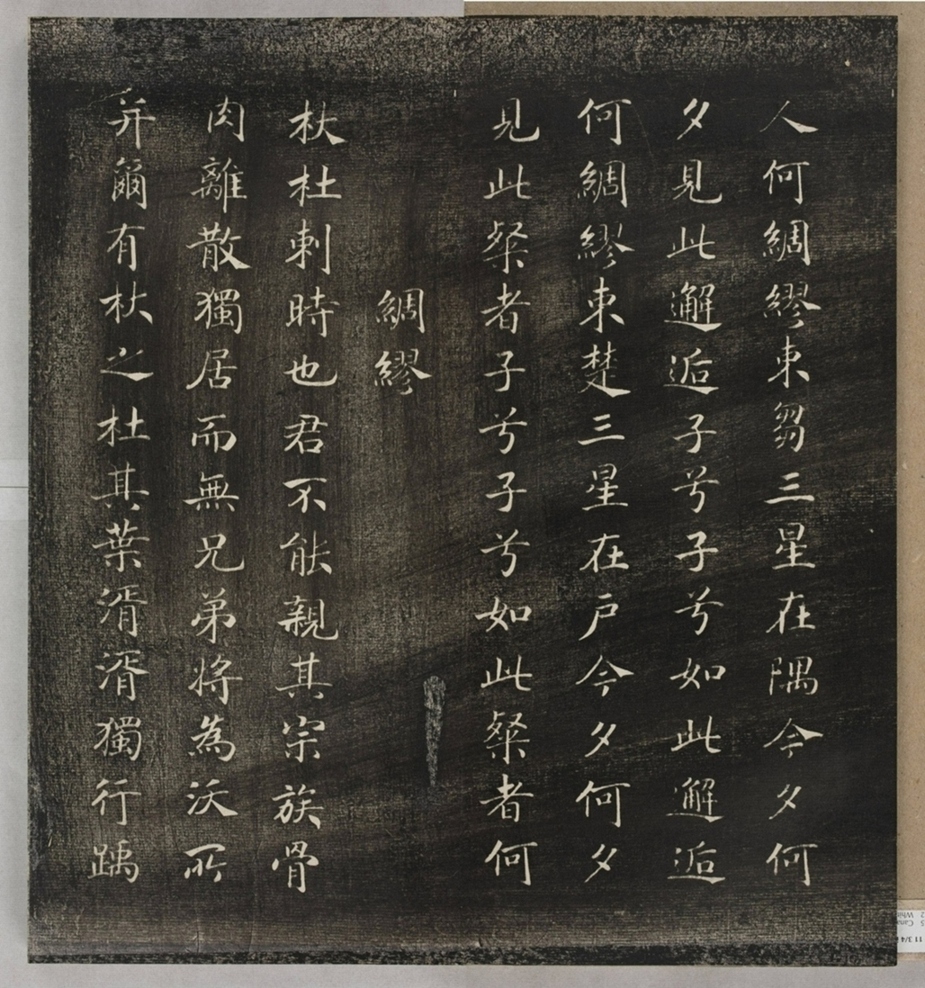 人何綢繆束芻三星在隅今夕何
夕見此邂逅子兮子兮如此邂逅
何綢繆束楚三星在戶今夕何夕
見此粲者子兮子兮如此粲者何
綢繆
杕杜刺時也君不能親其宗族骨
肉離散獨居而無兄弟將為沃所
并爾有杕之杜其葉湑湑獨行踽